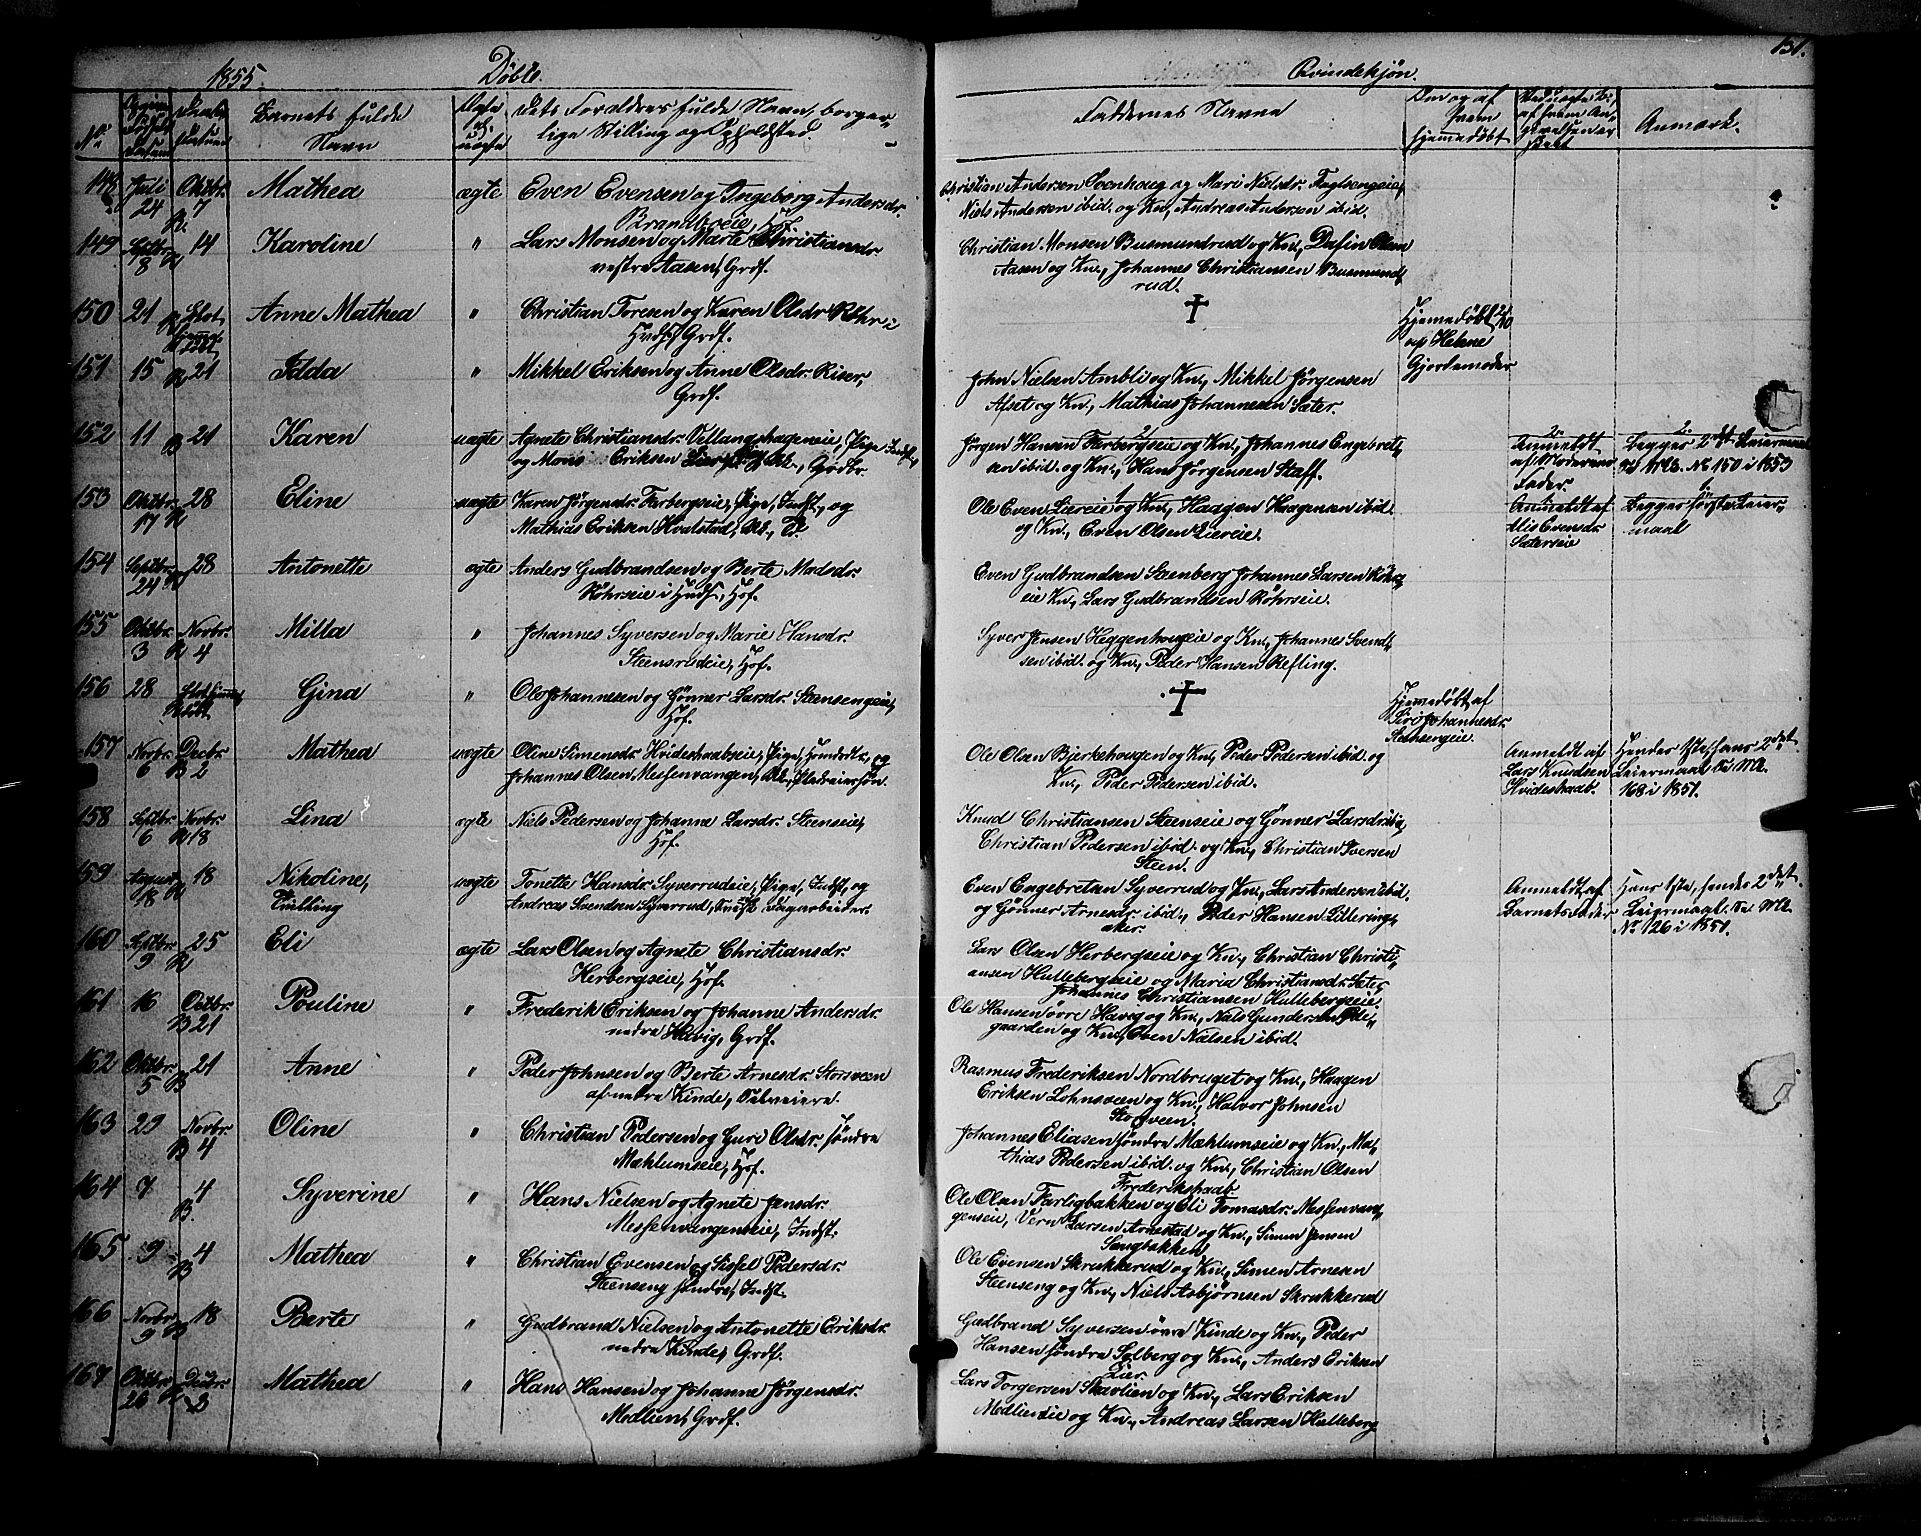 1855.
Döbte.
Qvindekjön.
151.
No.
Barnets fulde
Navn
Dets Forældres fulde Navn, borger-
lige Stilling og Opholdsted.
Faddernes Navne
Om og af
hvem
hjemmedöbt
Anmærk.
148 Juli 24 Octbr. 7 Mathea ægte Even Evensen og Ingeborg Andersdr.
Brandhoeie, Hof.
Christian Andersen Svenhoug og Mari Nielsdr.
Niels Andersen ibid. og Kn., Andreas Andersen ibid.
149 Septbr. 8 14 Karoline " Lars Monsen og Marte Christiansdr.
vestre Aasen, Grdf.
Christian Monsen Busmundrud og Kn., Dafin Olsen
Aasen og Kn., Johannes Christiansen Busmund-
rud.
150 21 Anne Mathea " Christian Toresen og Karen Olsdr. Röhr i
Hvdsf. Grdf.
Hjemmedöbt
af Helene
Gjordemoder
151 15 21 Idda " Mikkel Eriksen og Anne Olsdr. Riser,
Grdf.
John Nielsen Ambli og Kn., Mikkel Jörgensen
Afset og Kn., Mathias Johannesen Sæter.
152 11 B 21 Karen uægte Agnete Christiansdr. Vellangshageneie, Pige, Indst.
og Mons Eriksen
Jörgen Hansen Farbergseie og Kn., Johannes Engebret-
sen ibid. og Kn., Hans Jörgensen Staff.
2.
Anmeldt
af Moderens
Fader.
2.
Begges 2det Leiermaal
No 150 i 1853
153 Octbr. 17 28 Eline uægte Karen Jörgensdr. Farbergseie, Pige, Indst., og
Mathias Eriksen Hvalstad,
Ole Even Liereie og Kn., Haagen Haagensen ibid.
og Kn., Even Olsen Liereie.
Anmeldt af
Alis Evensdr.
Sæterseie
Begges förste Leier-
maal
154 Septbr. 24 28 Antonette ægte Anders Gudbrandsen og Berte Madsdr.
Röhrseie i Hvdsf., Hof.
Even Gudbrandsen Steenberg Johannes Larsen Röhrs-
eie Kn., Lars Gudbrandsen Röhrseie.
155 Octbr. 3 Novbr. 4 Milla " Johannes Syversen og Marie Hansdr.
Steensrudeie, Hof.
Syver Jensen Heggenhougeie og Kn., Johannes Svend-
sen ibid. og Kn., Peder Hansen Refling.
156 28 Gina " Ole Johannesen og Gönner Larsdr. Steensengeie,
Hof.
Hjemmedöbt af
Siri Johannesdr.
Stensengeie.
157 Novbr. 6 Decbr. B 2 Mathea uægte Oline Simensdr. Hvideskaabseie, Pige, og
Johannes Olsen Messenvangen,
Ole Olsen Bjerkehougen og Kn., Peder Pedersen ibid. og
Kn., Peder Pedersen ibid.
Anmeldt af
Lars Knudsen
Hvideskaab.
Hendes 1ste, hans 2det
Leiermaal.
168 i 1851.
158 Septbr. 6 Novbr. 18 Lina ægte Niels Pedersen og Johanne Larsdr. Steenseie,
Hof.
Knud Christiansen Steenseie og Gönner Larsdr. ibid.,
Christian Pedersen ibid. og Kn., Christian Iversen
Steen.
159 August 18 18 Nikoline,
Tvilling
uægte Tonette Hansdr. Syverrudeie, Pige, Indst., og
Andreas Svendsen Syverrud, Indst. Dagarbeider.
Even Engebretsen Syverrud og Kn., Lars Andersen ibid.
og Gönner Arnesdr. ibid., Peder Hansen Lillering-
aker.
Anmeldt af
Barnets Fader
Hans 1ste, hendes 2det
Leiermaal.
No 126 i 1851.
160 Septbr. 9 25 Eli ægte Lars Olsen og Agnete Christiansdr.
Herbergseie, Hof.
Lars Olsen Herbergseie og Kn., Christian Christi-
ansen Hullebergseie og Maria Christiansdr. Sæter,
Johannes Christiansen Hullebergseie.
161 16 Octbr. B 21 Pouline " Frederik Eriksen og Johanne Andersdr.
nedre Hævig, Grdf.
Ole Hansen övre Hævig og Kn., Niels Gundersen
gaarden og Kn., Even Nielsen ibid.
162 Octbr. 5 21 B Anne " Peder Johnsen og Berte Arnesdr. Storsveen
af nedre Kinde, Selveiere.
Rasmus Frederiksen Nordbruget og Kn., Haagen
Eriksen Lohnsveen og Kn., Halvor Johnsen
Storsveen.
163 29 Novbr. B 4 Oline " Christian Pedersen og Guri Olsdr. söndre
Mæhlumseie, Hof.
Johannes Eliasen söndre Mæhlumseie og Kn., Ma-
thias Pedersen ibid. og Kn., Christian Olsen
Frederikshaab.
164 7 4 B. Syverine " Hans Nielsen og Agnete Jensdr.
Messenvangenseie, Indst.
Ole Olsen Farligbakken og Eli Tomasdr. Messenvan-
genseie, Larsen Arnestad og Kn., Simen Jensen
Sangbakken
165 9 4 B Mathea " Christian Evensen og Sissel Pedersdr.
Steenseng söndre, Indst.
Ole Evensen Skrukkerud og Kn., Simen Arnesen
Steenseng og Kn., Niels Asbjörnsen Skrukkerud
166 Novbr. 9 18 Berte " Gudbrand Nielsen og Antonette Eriksdr.
nedre Kinde, Grdf.
Gudbrand Syversen övre Kinde og Kn., Peder
Hansen söndre Solberg og Kn., Anders Eriksen
Lier.
167 Octbr. 26 Decbr. 2 Mathea " Hans Hansen og Johanne Jörgensdr.
Medlien, Grdf.
Lars Torgersen Skavlien og Kn., Lars Eriksen
Medlieneie og Kn., Andreas Larsen Hulleberg